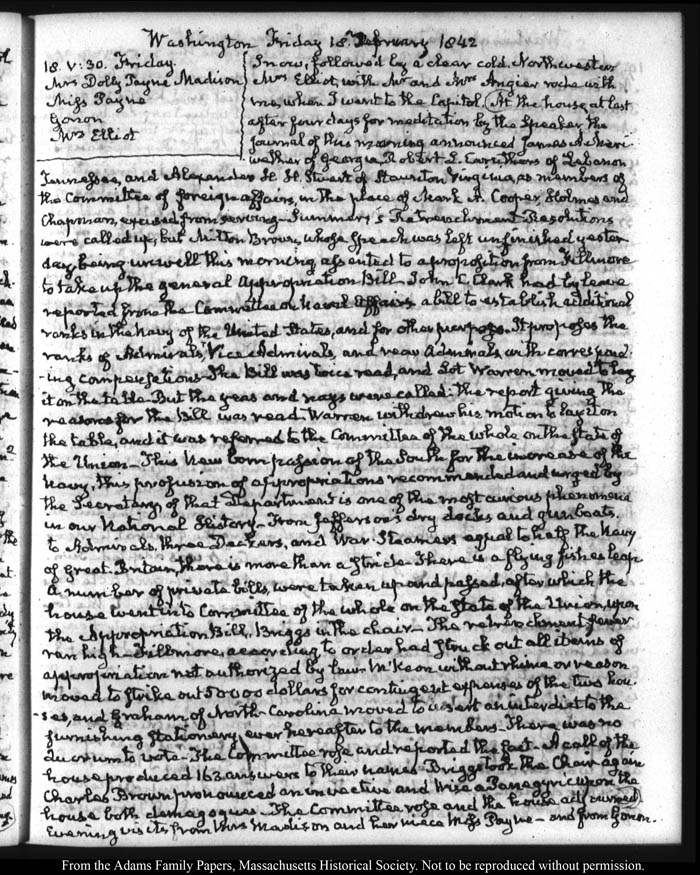 Washington Friday 18. February 1842
18. V:30. Friday.
Mrs Dolly Payne Madison
Miss Payne
Gorion
Mrs Elliot
Snow, followed by a clear cold Northwester
Mrs Elliot, with Mr and Mrs Angier rode with
me, when I went to the Capitol. (At the house at last
after four days for meditation by the Speaker the
journal of this morning announced James A. Meri-
wether of Georgia, Robert L. Carruthers of Lebanon
Tennessee, and Alexander H. H. Stuart of Staunton Virginia, as members of
the Committee of foreign affairs, in the place of Mark A. Cooper, Holmes and
Chapman, excused from serving— Summers's Retrenchment Resolutions
were called up, but Milton Brown, whose speech was left unfinished yester-
day, being unwell this morning, assented to a proposition from Fillmore
to take up the general Appropriation Bill. John C. Clark had by leave
reported from the Committee on Naval Affairs a bill to establish additional
ranks in the navy of the United States, and for other purposes. It proposes the
ranks of Admirals, Vice Admirals, and rear Admirals, with correspond-
-ing compensations— The Bill was twice read, and Lot Warren moved to lay
it on the table— But the yeas and nays were called: the report giving the
reasons for the Bill was read— Warren withdrew his motion to lay it on
the table, and it was referred to the Committee of the whole on the state of
the Union— This new born passion of the South for the increase of the
Navy, this profusion of appropriations recommended and urged by
the Secretary of that Department is one of the most curious phenomena
in our National History— From Jefferson's dry docks and gunboats,
to Admirals, three Deckers, and War-Steamers equal to half the Navy
of Great-Britain, there is more than a stride— There is a flying fish's leap
A number of private bills, were taken up and passed, after which the
house went into Committee of the whole on the State of the Union, upon
the Appropriation Bill, Briggs in the chair— The retrenchment fever
ran high— Fillmore, according to order had struck out all items of
appropriation not authorized by law— McKeon without rhime or reason
moved to strike out 50000 dollars for contingent expenses of the two hou-
-ses, and Graham of North-Carolina moved to insert an interdict to the
furnishing stationery, ever hereafter to the members— There was no
Quorum to vote— The Committee rose and reported the fact— A call of the
house produced 163 answers to their names— Briggs took the Chair again
Charles Brown pronounced an invective and Wise a Panegyric upon the
house both demagogues. The Committee rose and the house adjourned)
Evening visits from Mrs Madison and her niece Miss Payne— and from Gorion.
From the Adams Family Papers, Massachusetts Historical Society. Not to be reproduced without permission.